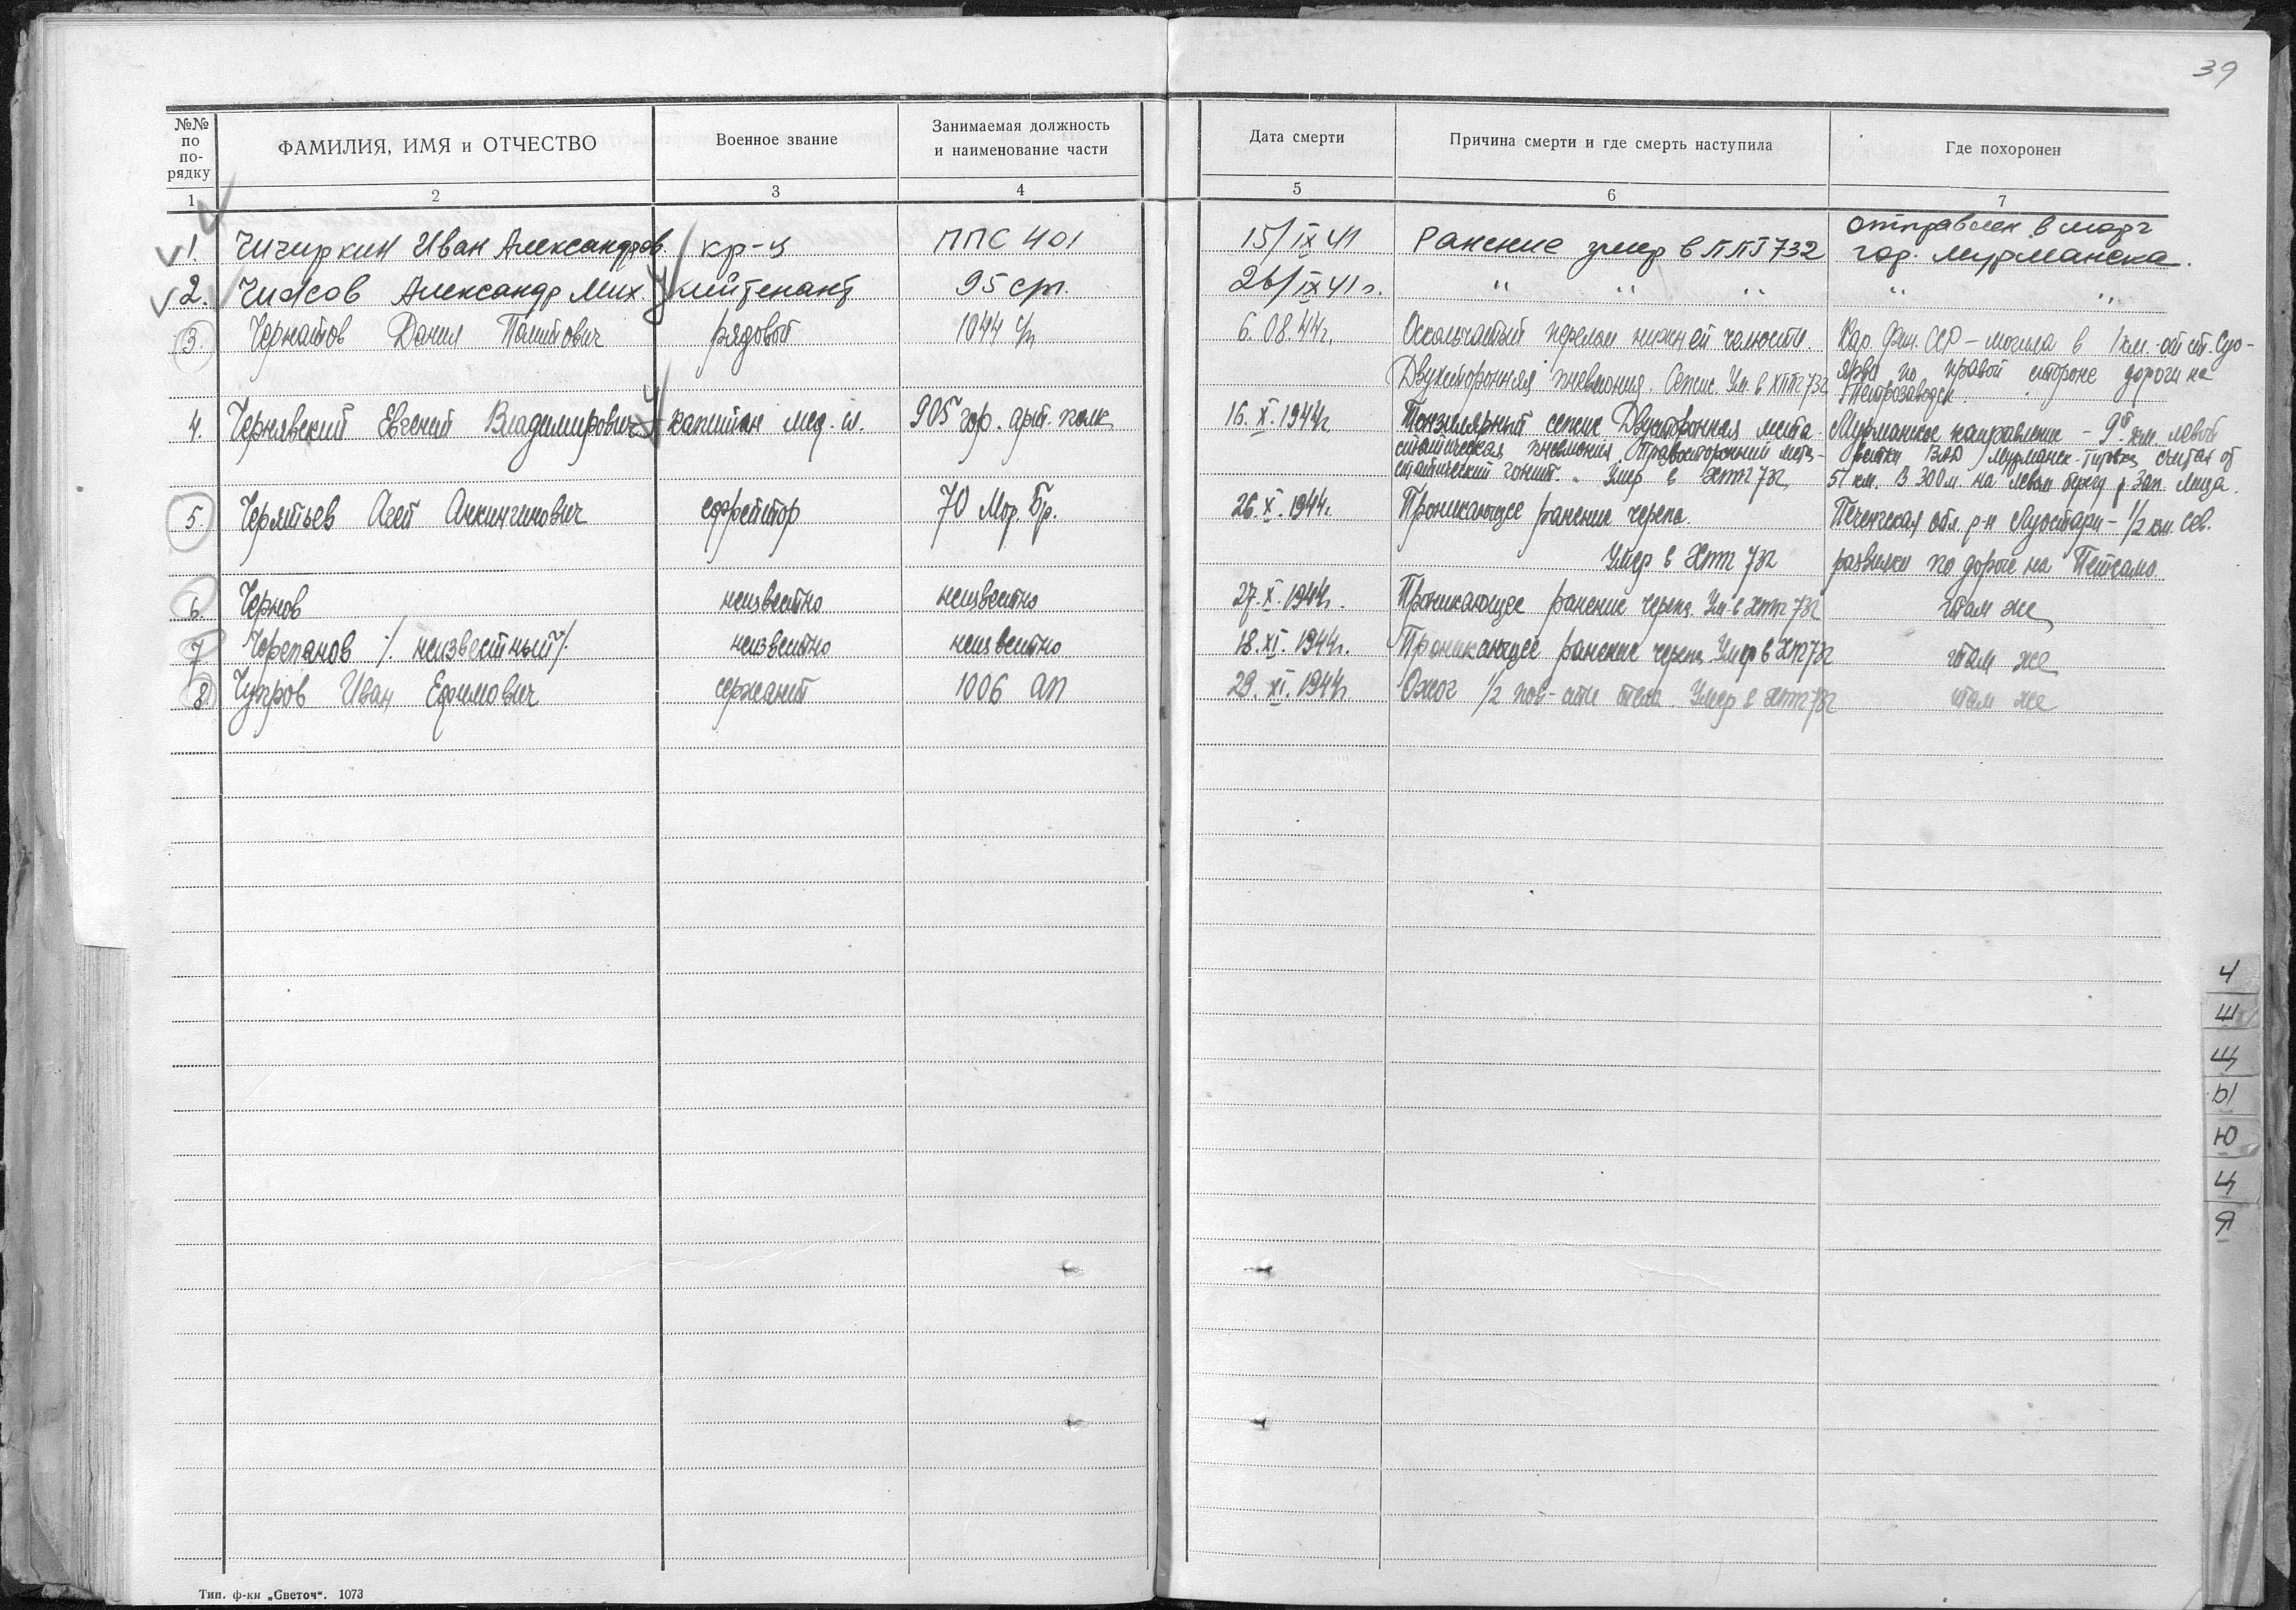 39
№№ по по-рядку
ФАМИЛИЯ, ИМЯ и ОТЧЕСТВО
Военное звание
Занимаемая должность и наименование части
Дата смерти
Причина смерти и где смерть наступила
Где похоронен
1 2 3 4 5 6 7
1. Чичиркин Иван Александров. кр-ц ППС 401 15/IX 41 Ранение умер в ППГ 732 отправлен в морг
гор. Мурманска.
2. Чижов Александр Мих. лейтенант 95 сп. 26/IX 41 г. " " " " "
3. Данил рядовой 1044 сп 6.08.44г. Оскольчатый перелом нижней челюсти. Кар. Фин. ССР – могила в 1 км. от ст. Суо-
Двухсторонняя пневмония. Сепсис. Ум. в ХППГ 732 ярви по правой стороне дороги на
Петрозаводск.
4. Чернявский Евгений Владимирович капитан мед. сл. 905 гор. арт. полк 16.X.1944г. Тонзилярный сепсис Двухсторонняя мета-
статическая пневмония Правосторонний мета-
статический гонит. Умер в ХППГ 732
Мурманское направление – 9й км. левой
ветки ВАД Мурманск-Титовка считая от
51 км. В 300 м. на левом берегу р. Зап. Лица.
5. Агей ефрейтор 70 Мор. Бр. 26.X.1944г. Проникающее ранение черепа. Печенгская обл. р-н Луостари – 1/2 км. сев.
Умер в ХППГ 732 развилки по дороге на Петсамо
6. Чернов неизвестно неизвестно 27.X.1944г. Проникающее ранение черепа. Ум. в ХППГ 732 там же
7 Черепанов /. неизвестный/. неизвестно неизвестно 18.XI.1944г. Проникающее ранение черепа Умер в ХППГ 732 там же
8. Иван Ефимович сержант 1006 АП 29.XI.1944г. Ожог 1/2 пов-сти тела. Умер в ХППГ 732 там же
Ч
Ш
Щ
Ы
Ю
Ц
Я
Тип. ф-ки „Светоч“. 1073